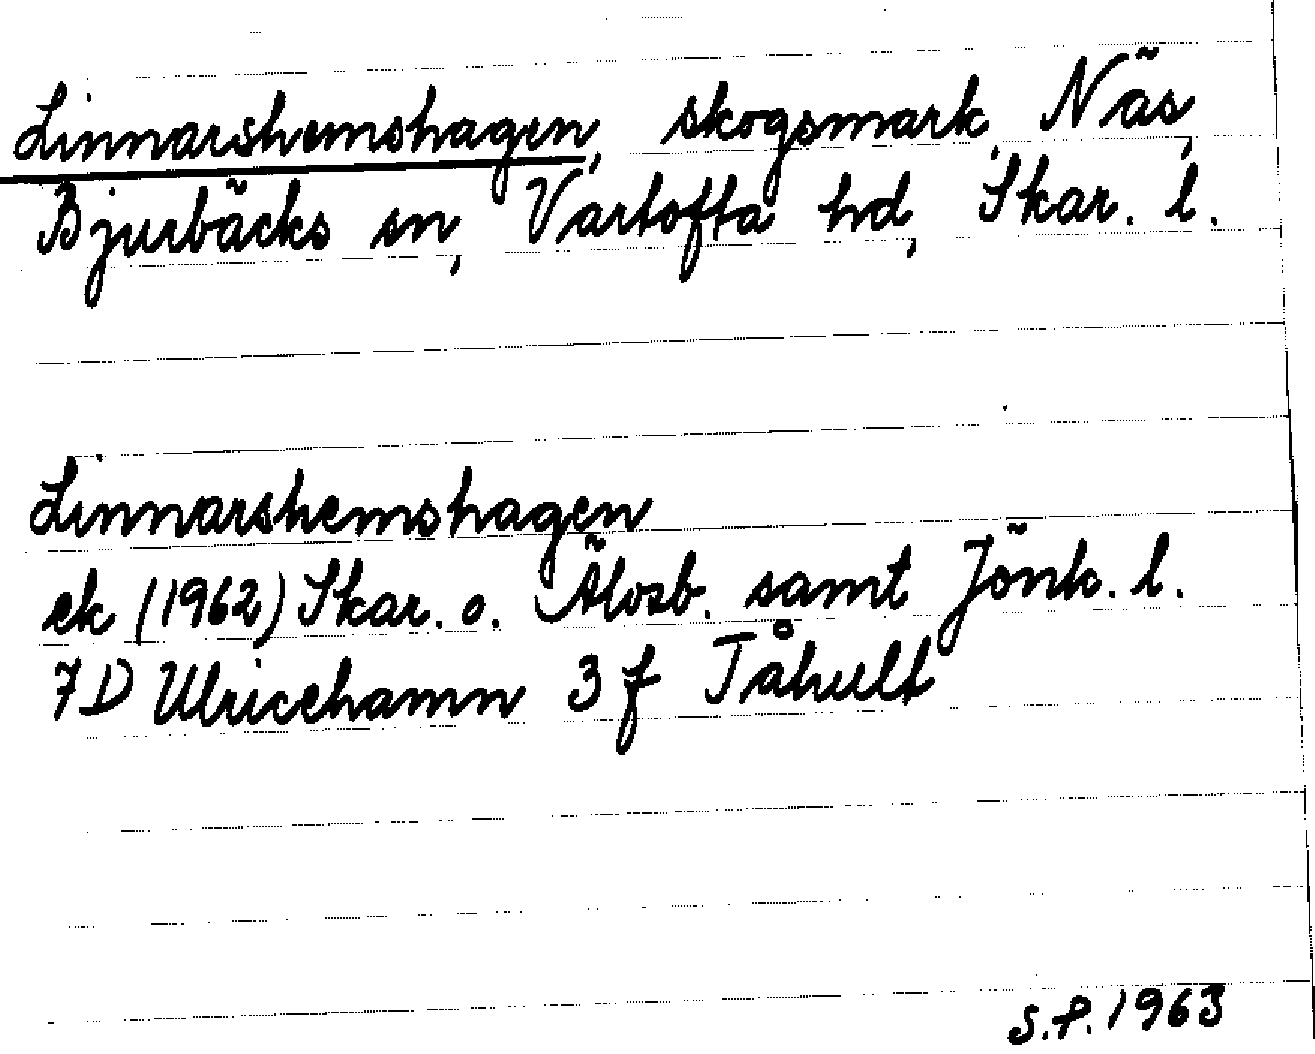 Linnarshemshagen, skogsmark, Näs,
Bjurbäcks sn, Vartofta hd, Skar. l.
Linnarshemshagen
ek (1962) Skar. o. Älvsb. samt Jönk. l.
7D Ulricehamn 3 f Tåhult
S.P. 1963